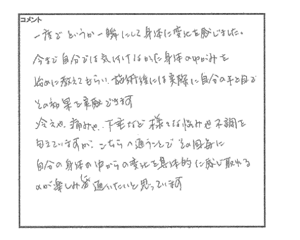 コメント
一度で というか一瞬にして身体に変化を感じました。
今まで自分では気付けなかった身体のゆがみを
始めに教えてもらい、施術後には実際に自分の手と目で
その効果を実感できます
冷えや、痛みや、下垂など 様々な悩みや不調を
抱えていますが、こちらへ通うことで その回毎に
自分の身体の中からの変化を具体的に感じ取れる
のが楽しみで通いたいと思っています